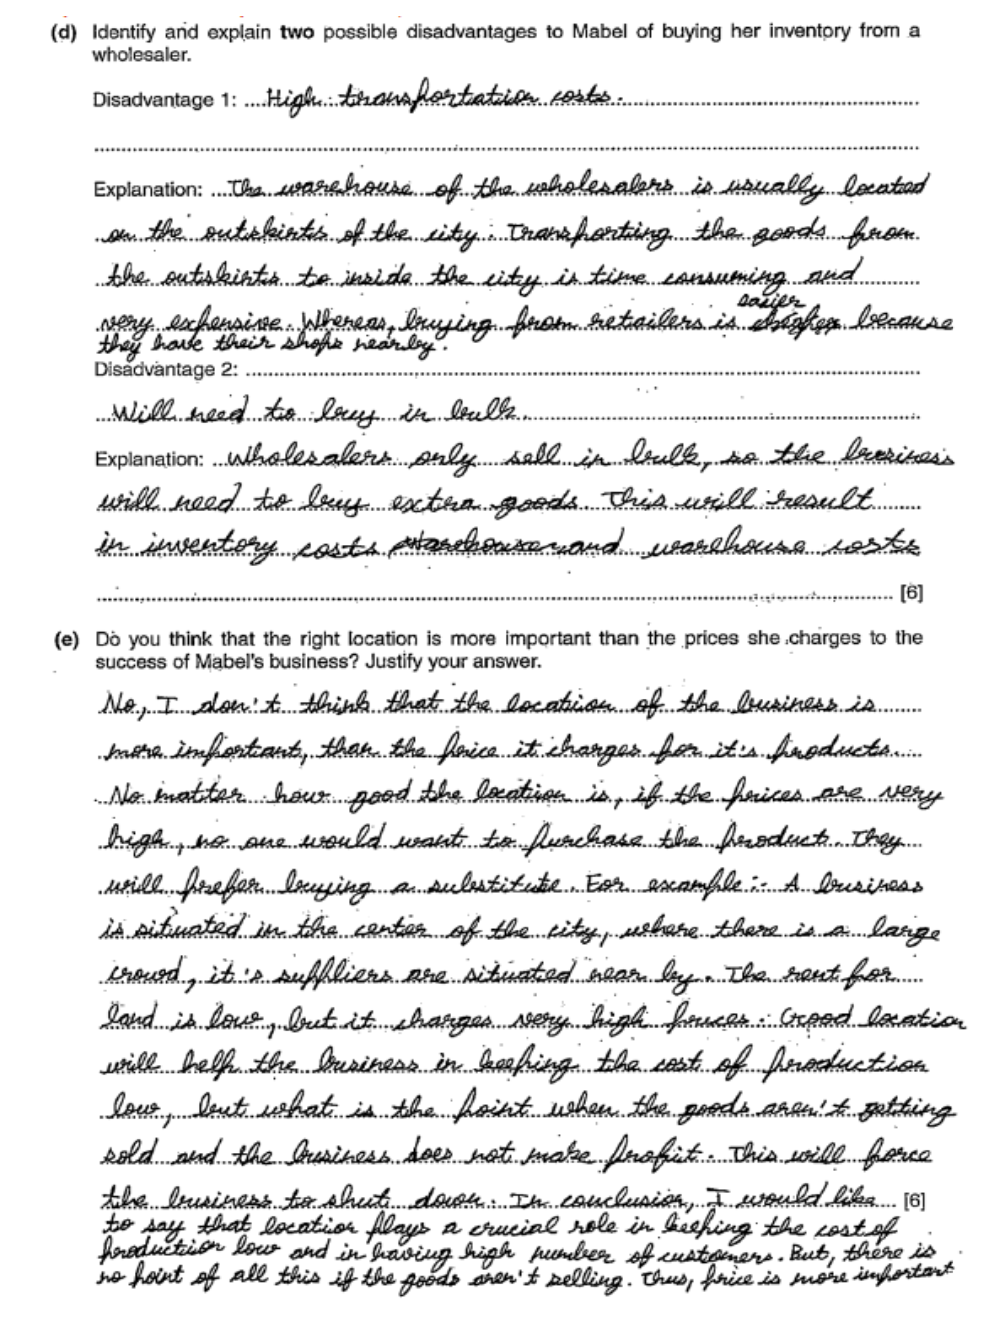 (d) Identify and explain two possible disadvantages to Mabel of buying her inventory from a
wholesaler.
Disadvantage 1: High transportation costs.
Explanation: The warehouse of the wholesalers is usually located
on the outskirts of the city. Transporting the goods from
the outskirts to inside the city is time consuming and
easier
very expensive. Whereas, buying from retailers is because
they have their shops nearby.
Disadvantage 2:
Will need to buy in bulk.
Explanation: Wholesalers only sell in bulk, so the business
will need to buy extra goods. This will result
in inventory costs and warehouse costs
[6]
(e) Do you think that the right location is more important than the prices she charges to the
success of Mabel's business? Justify your answer.
No, I don't think that the location of the business is
more important, than the price it charges for it's products.
No matter how good the location is, if the prices are very
high, no one would want to purchase the product. They
will prefer buying a substitute. For example:- A business
is situated in the center of the city, where there is a large
crowd, it's suppliers are situated near by. The rent for
land is low, but it charges very high prices. Good location
will help the business in keeping the cost of production
low, but what is the point when the goods aren't getting
sold and the business does not make profit. This will force
the business to shut down. In conclusion, I would like [6]
to say that location plays a crucial role in keeping the cost of
production low and in having high number of customers. But, there is
no point of all this if the goods aren't selling. Thus, price is more important